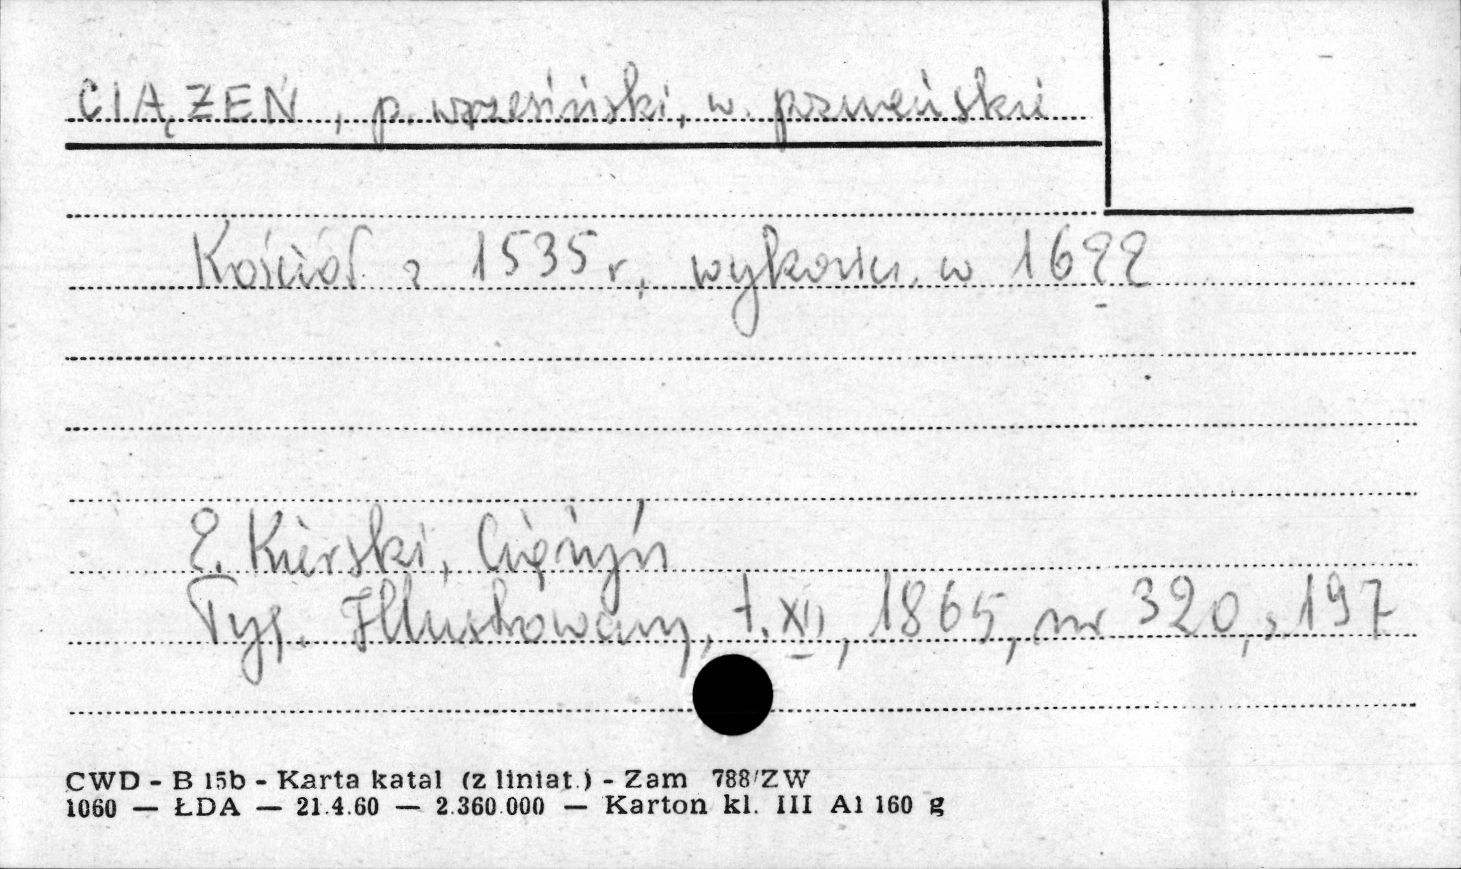 CIĄŻEŃ, p. wrzesiński, w. poznańskie
Kościół z 1535 r., wykończ. w 1622
E. Kierski, Ciężyń
Tyg. Illustrowany, t. XII, 1865, nr 320, s. 197
CWD - B 15b - Karta katal (z liniat.) - Zam 788/ZW
1060 — ŁDA — 21.4.60 — 2.360.000 — Karton kl. III A1 160 g